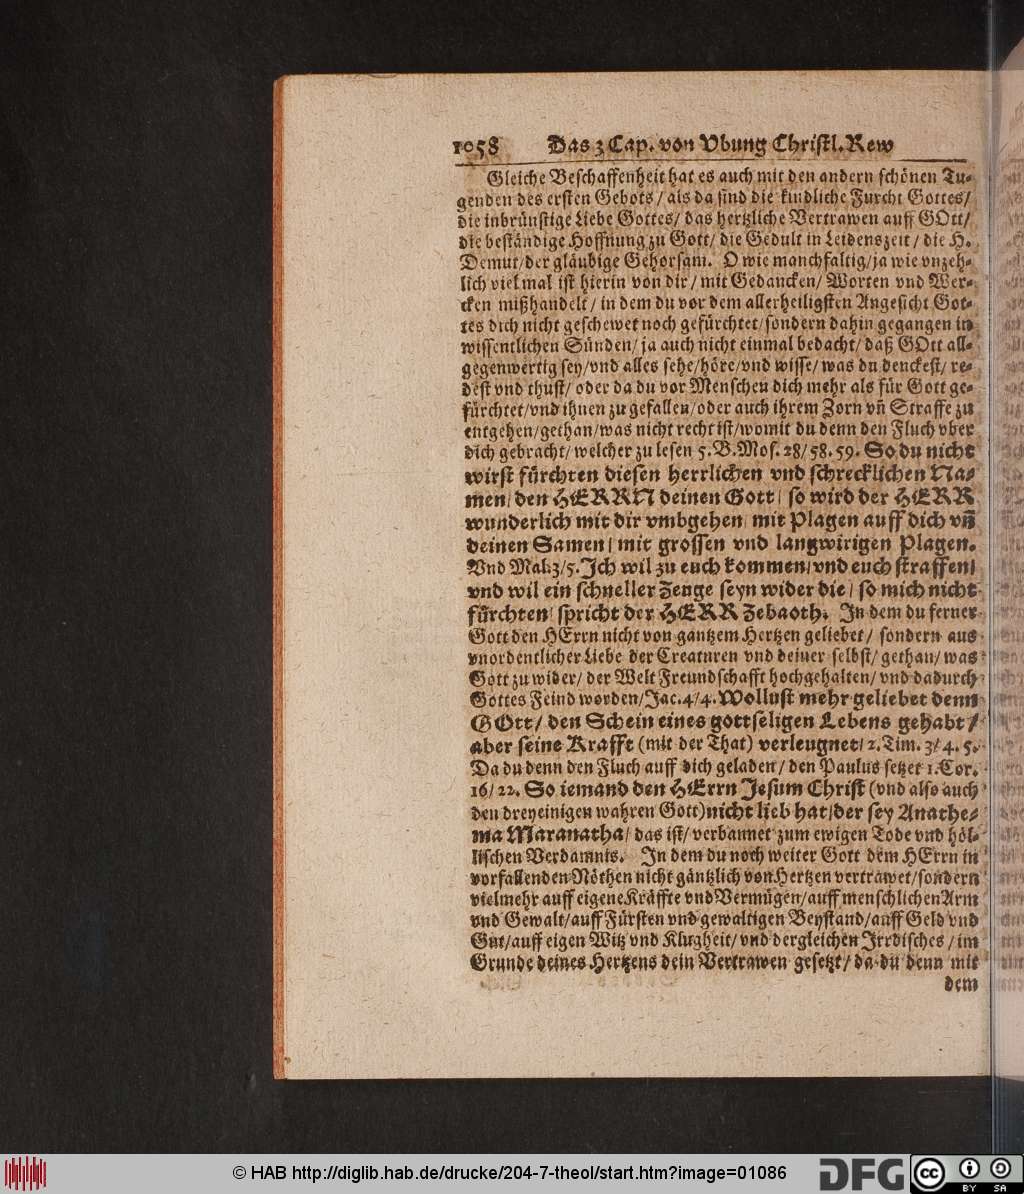 1058 Das 3 Cap. von Vbung Christl. Rew
Gleiche Beschaffenheit hat es auch mit den andern schönen Tu-
genden des ersten Gebots / als da sind die kindliche Furcht Gottes/
die inbrünstige Liebe Gottes/ das hertzliche Vertrawen auff GOtt/
die beständige Hoffnung zu Gott/ die Gedult in Leidenszeit / die H.
Demut/der gläubige Gehorsam. O wie manchfaltig/ja wie vnzeh-
lich viel mal ist hierin von dir / mit Gedancken/ Worten vnd Wer-
cken mißhandelt / in dem du vor dem allerheiligsten Angesicht Got-
tes dich nicht geschewet noch gefürchtet/sondern dahin gegangen in
wissentlichen Sünden/ ja auch nicht einmal bedacht/ daß GOtt all-
gegenwertig sey/vnd alles sehe/höre/vnd wisse/ was du denckest/ re-
dest vnd thust/ oder da du vor Menschen dich mehr als für Gott ge-
fürchtet/vnd ihnen zu gefallen/oder auch ihrem Zorn vñ Straffe zu
entgehen/gethan/was nicht recht ist/womit du denn den Fluch vber
dich gebracht/ welcher zu lesen 5. B. Mos. 28/58. 59. So du nicht
wirst fürchten diesen herrlichen vnd schrecklichen Na-
men/ den HERRN deinen Gott/ so wird der HERR
wunderlich mit dir vmbgehen/ mit Plagen auff dich vñ
deinen Samen/ mit grossen vnd langwirigen Plagen.
Vnd Mal. 3/5. Ich wil zu euch kommen/vnd euch straffen/
vnd wil ein schneller Zeuge seyn wider die/ so mich nicht
fürchten/ spricht der HERR Zebaoth. In dem du ferner
Gott den HErrn nicht von gantzem Hertzen geliebet/ sondern aus
vnordentlicher Liebe der Creaturen vnd deiner selbst/ gethan/ was
Gott zu wider/ der Welt Freundschafft hochgehalten/ vnd dadurch
Gottes Feind worden/Jac. 4/4. Wollust mehr geliebet denn
GOtt/ den Schein eines gottseligen Lebens gehabt/
aber seine Krafft (mit der That) verleugnet/ 2. Tim. 3/4. 5.
Da du denn den Fluch auff dich geladen/ den Paulus setzet 1. Cor.
16/ 22. So iemand den HErrn Jesum Christ (vnd also auch
den dreyeinigen wahren Gott) nicht lieb hat/der sey Anathe-
ma Maranatha/ das ist/ verbannet zum ewigen Tode vnd höl-
lischen Verdamnis. In dem du noch weiter Gott dem HErrn in
vorfallenden Nöthen nicht gäntzlich von Hertzen vertrawet/sondern
vielmehr auff eigene Kräffte vnd Vermügen/auff menschlichen Arm
vnd Gewalt/auff Fürsten vnd gewaltigen Beystand/auff Geld vnd
Gut/auff eigen Witz vnd Klugheit/ vnd dergleichen Irrdisches / im
Grunde deines Hertzens dein Vertrawen gesetzt/ da du denn mit
dem
© HAB http://diglib.hab.de/drucke/204-7-theol/start.htm?image=01086
DFG
cc BY SA